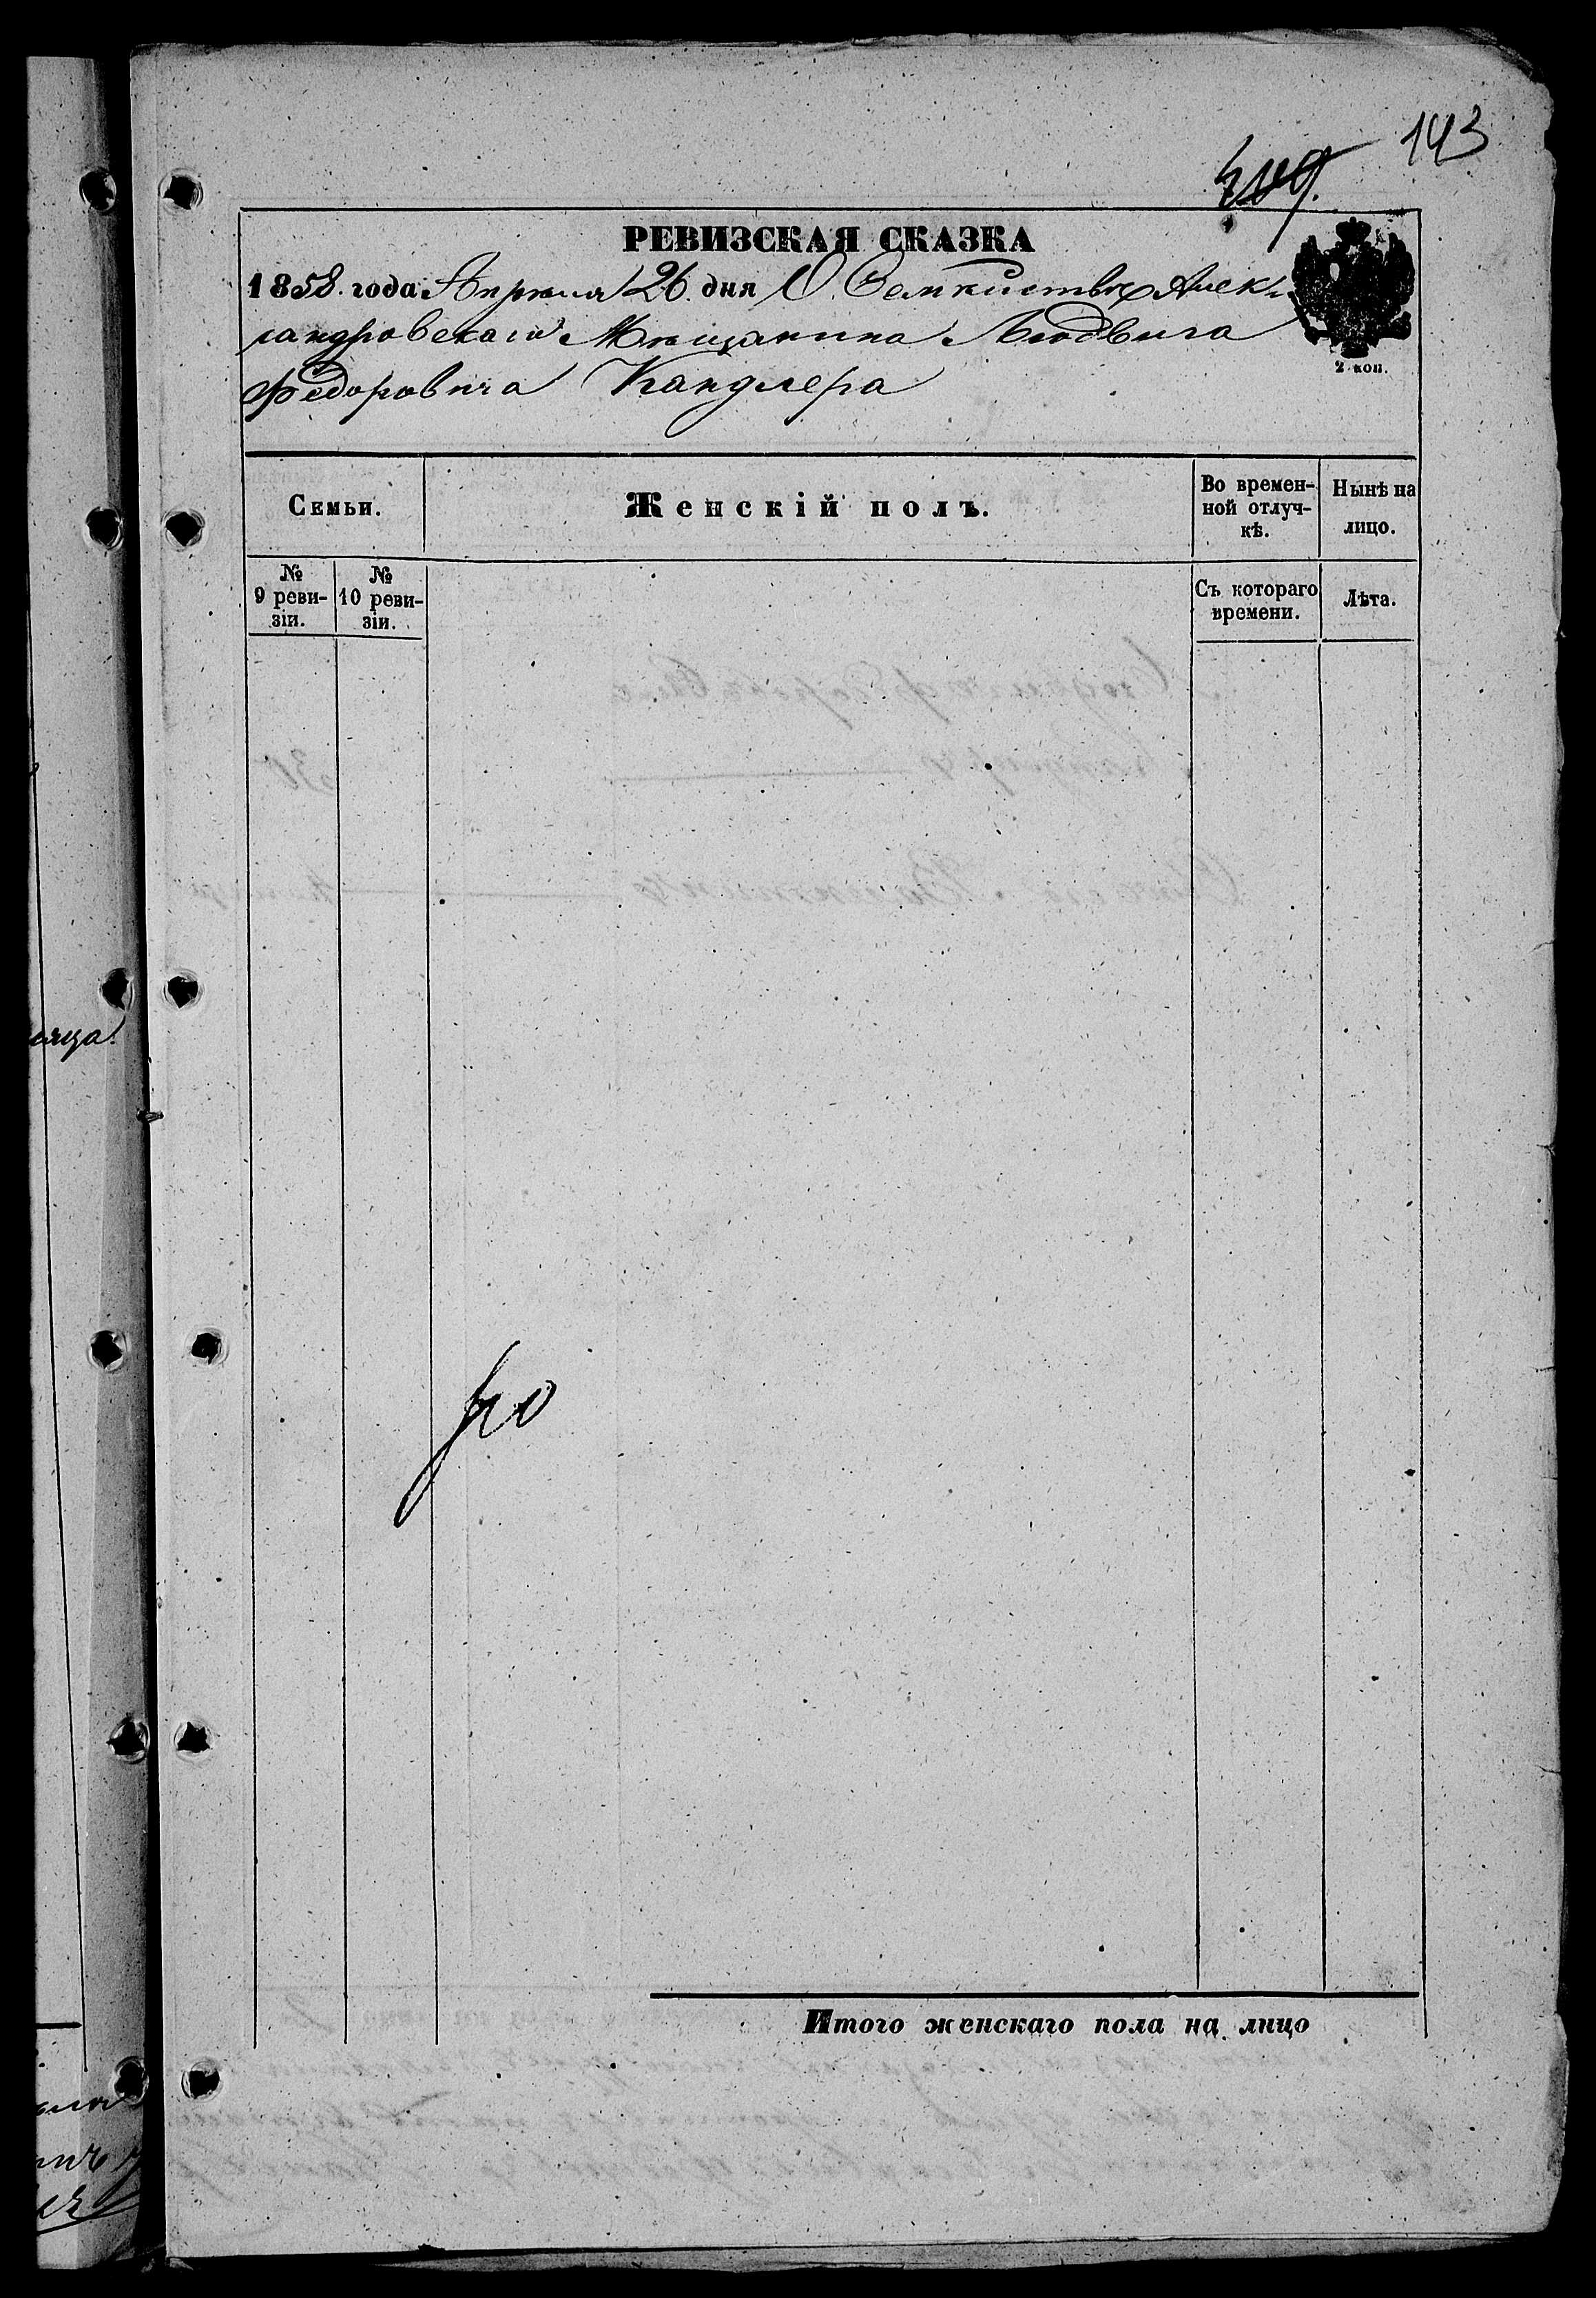 143
РЕВИЗСКАЯ СКАЗКА
1858. года Апреля 26. дня О Семействе Алек-
сандровскаго Мещанина Людвига
Федоровича Кандлера
2 коп.
Семьи.
Женскій полъ.
Во времен-
ной отлуч-
кѣ.
Нынѣ на
лицо.
№
9 реви-
зіи.
№
10 реви-
зіи.
Съ котораго
времени.
Лѣта.
Итого женскаго пола на лицо